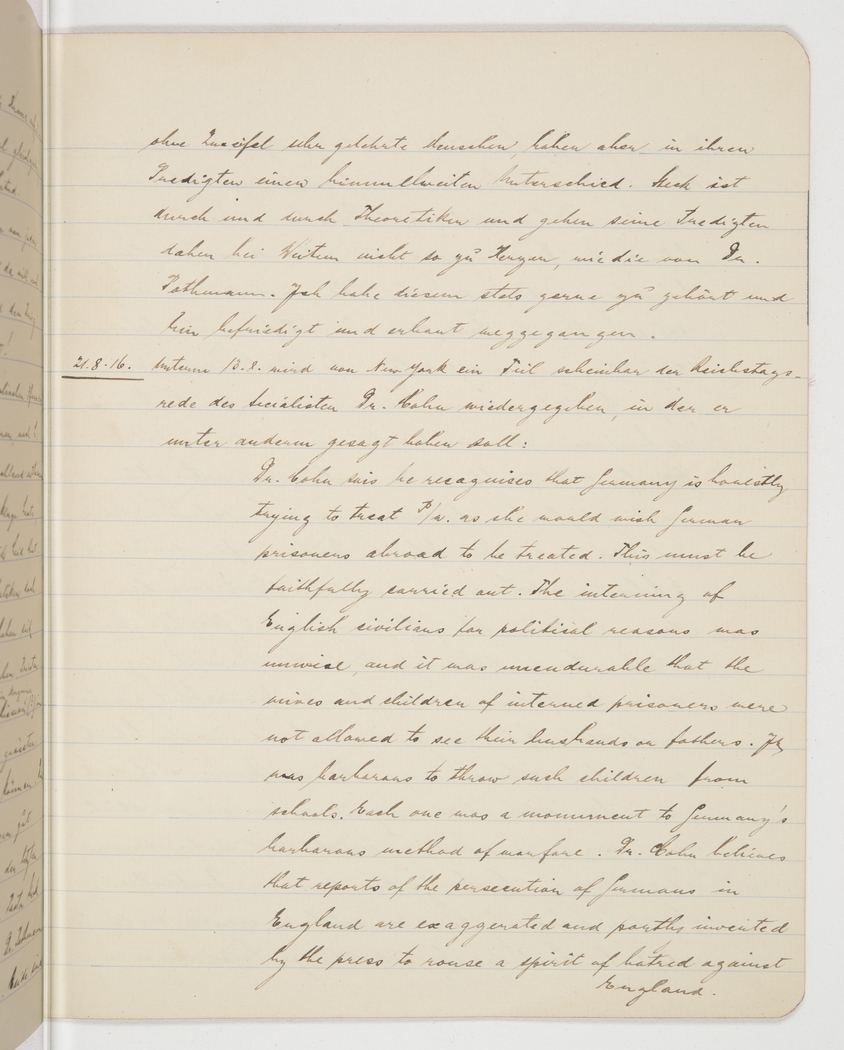 ohne Zweifel sehr gelehrte Menschen, haben aber in ihren
Predigten einen himmelweiten Unterschied. Heck ist
durch und durch Theoretiker und gehen seine Predigten
daher bei Weitem nicht so zu Herzen, wie die von Dr.
Pothmann. Ich habe diesem stets gerne zu gehört und
bin befriedigt und erbaut weggegangen.
21.8.16. Unterm 13.8. wird von New York ein Teil scheinbar der Reichstags-
rede des Socialisten Dr. Cohn wiedergegeben, in der er
unter anderm gesagt haben soll:
Dr. Cohn sais he recagnises that Germany is honestly
trying to treat P/W. as she would wish German
prisoners abroad to be treated. This must be
faithfully carried out. The interning of
English civilians for political reasons was
unwise, and it was unendurable that the
wives and children of interned prisoners were
not allowed to see their husbands or fathers. It
was barbarous to throw such children from
schools. Each one was a monument to Germany's
barbarous method of warfare. Dr. Cohn believes
that reports of the persecution of Germans in
England are exaggerated and partly invented
by the press to rouse a spirit of hatred against
England.